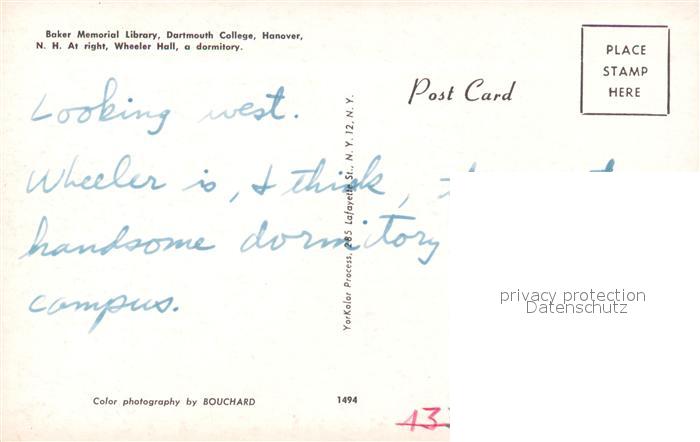 Baker Memorial Library, Dartmouth College, Hanover,
N. H. At right, Wheeler Hall, a dormitory.
PLACE
STAMP
HERE
Post Card
Looking west.
Wheeler is, I think,
handsome dormitory
campus.
YorKolor Process, 285 Lafayette St., N. Y. 12, N. Y.
privacy protection
Datenschutz
Color photography by BOUCHARD
1494